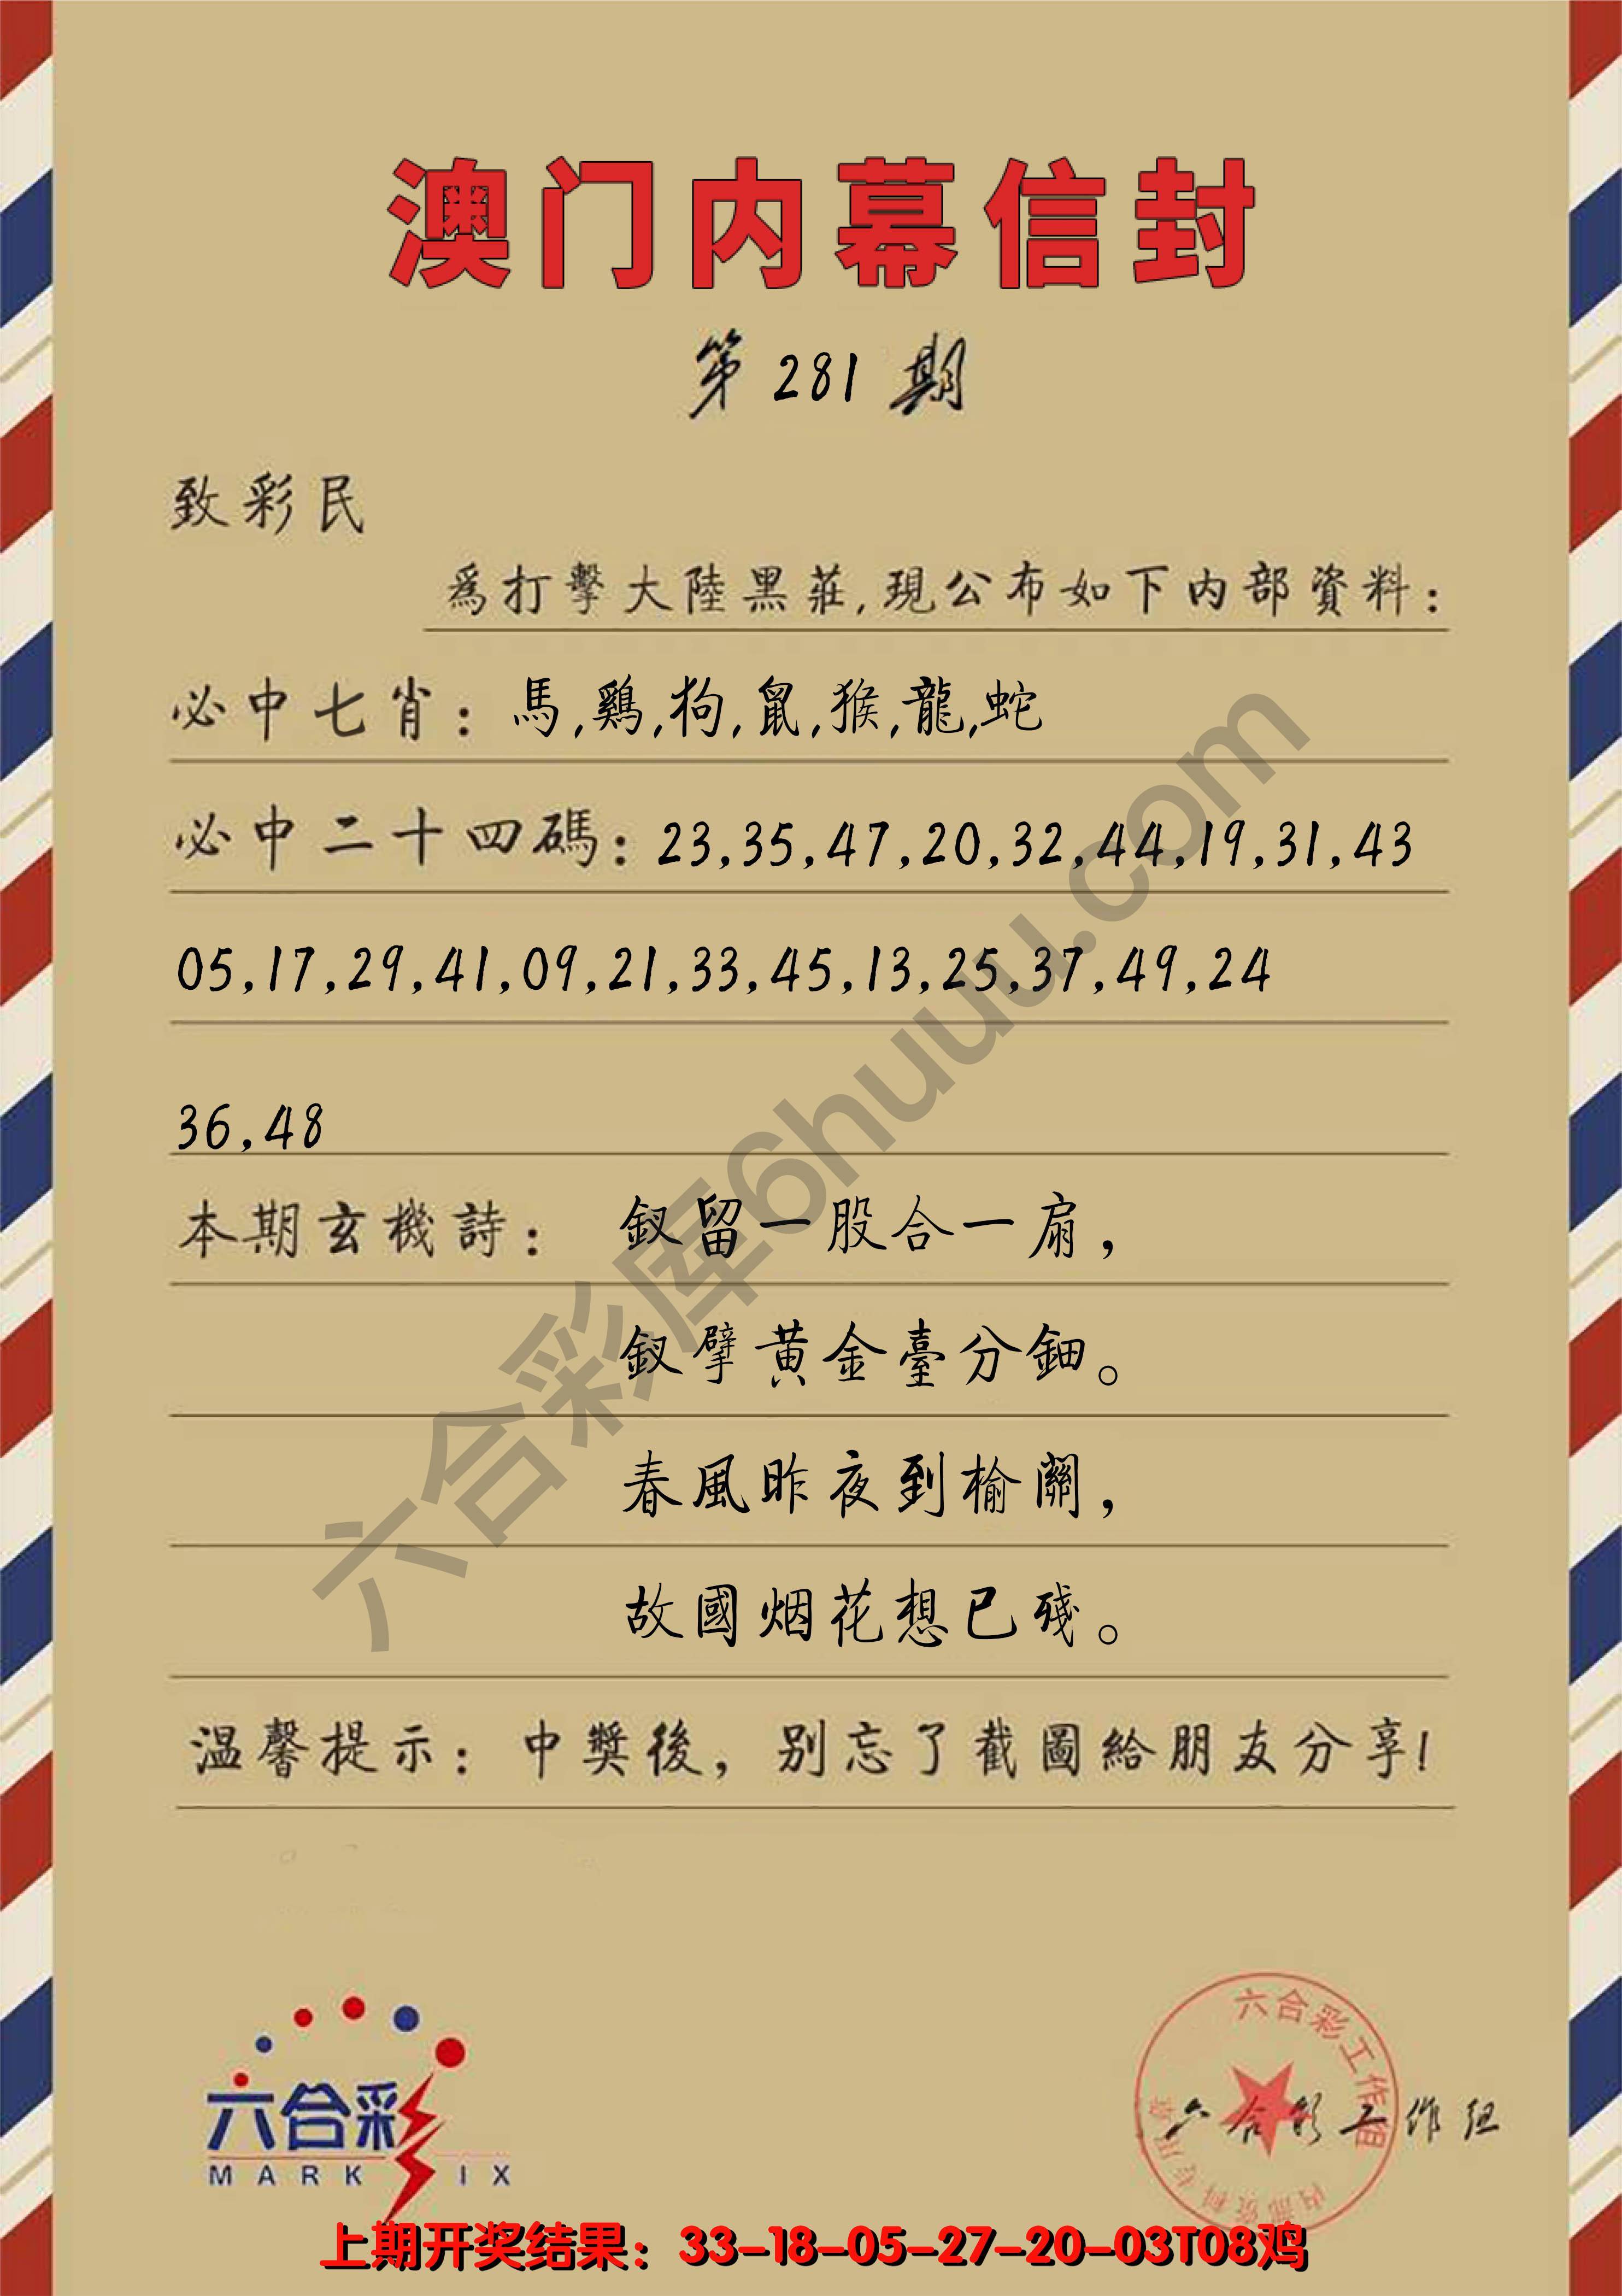 澳门内幕信封
第 281 期
致彩民
爲打擊大陸黑莊,現公布如下内部資料:
必中七肖: 馬,鷄,狗,鼠,猴,龍,蛇
必中二十四碼: 23,35,47,20,32,44,19,31,43
05,17,29,41,09,21,33,45,13,25,37,49,24
36,48
本期玄機詩: 釵留一股合一扇,
釵擘黄金臺分鈿。
春風昨夜到榆關,
故國烟花想已殘。
温馨提示: 中獎後, 别忘了截圖給朋友分享!
六合彩库6huuu.com
六合彩
MARK IX
六合彩工作组
内部资料专用章
六合彩工作组
上期开奖结果: 33-18-05-27-20-03T08鸡